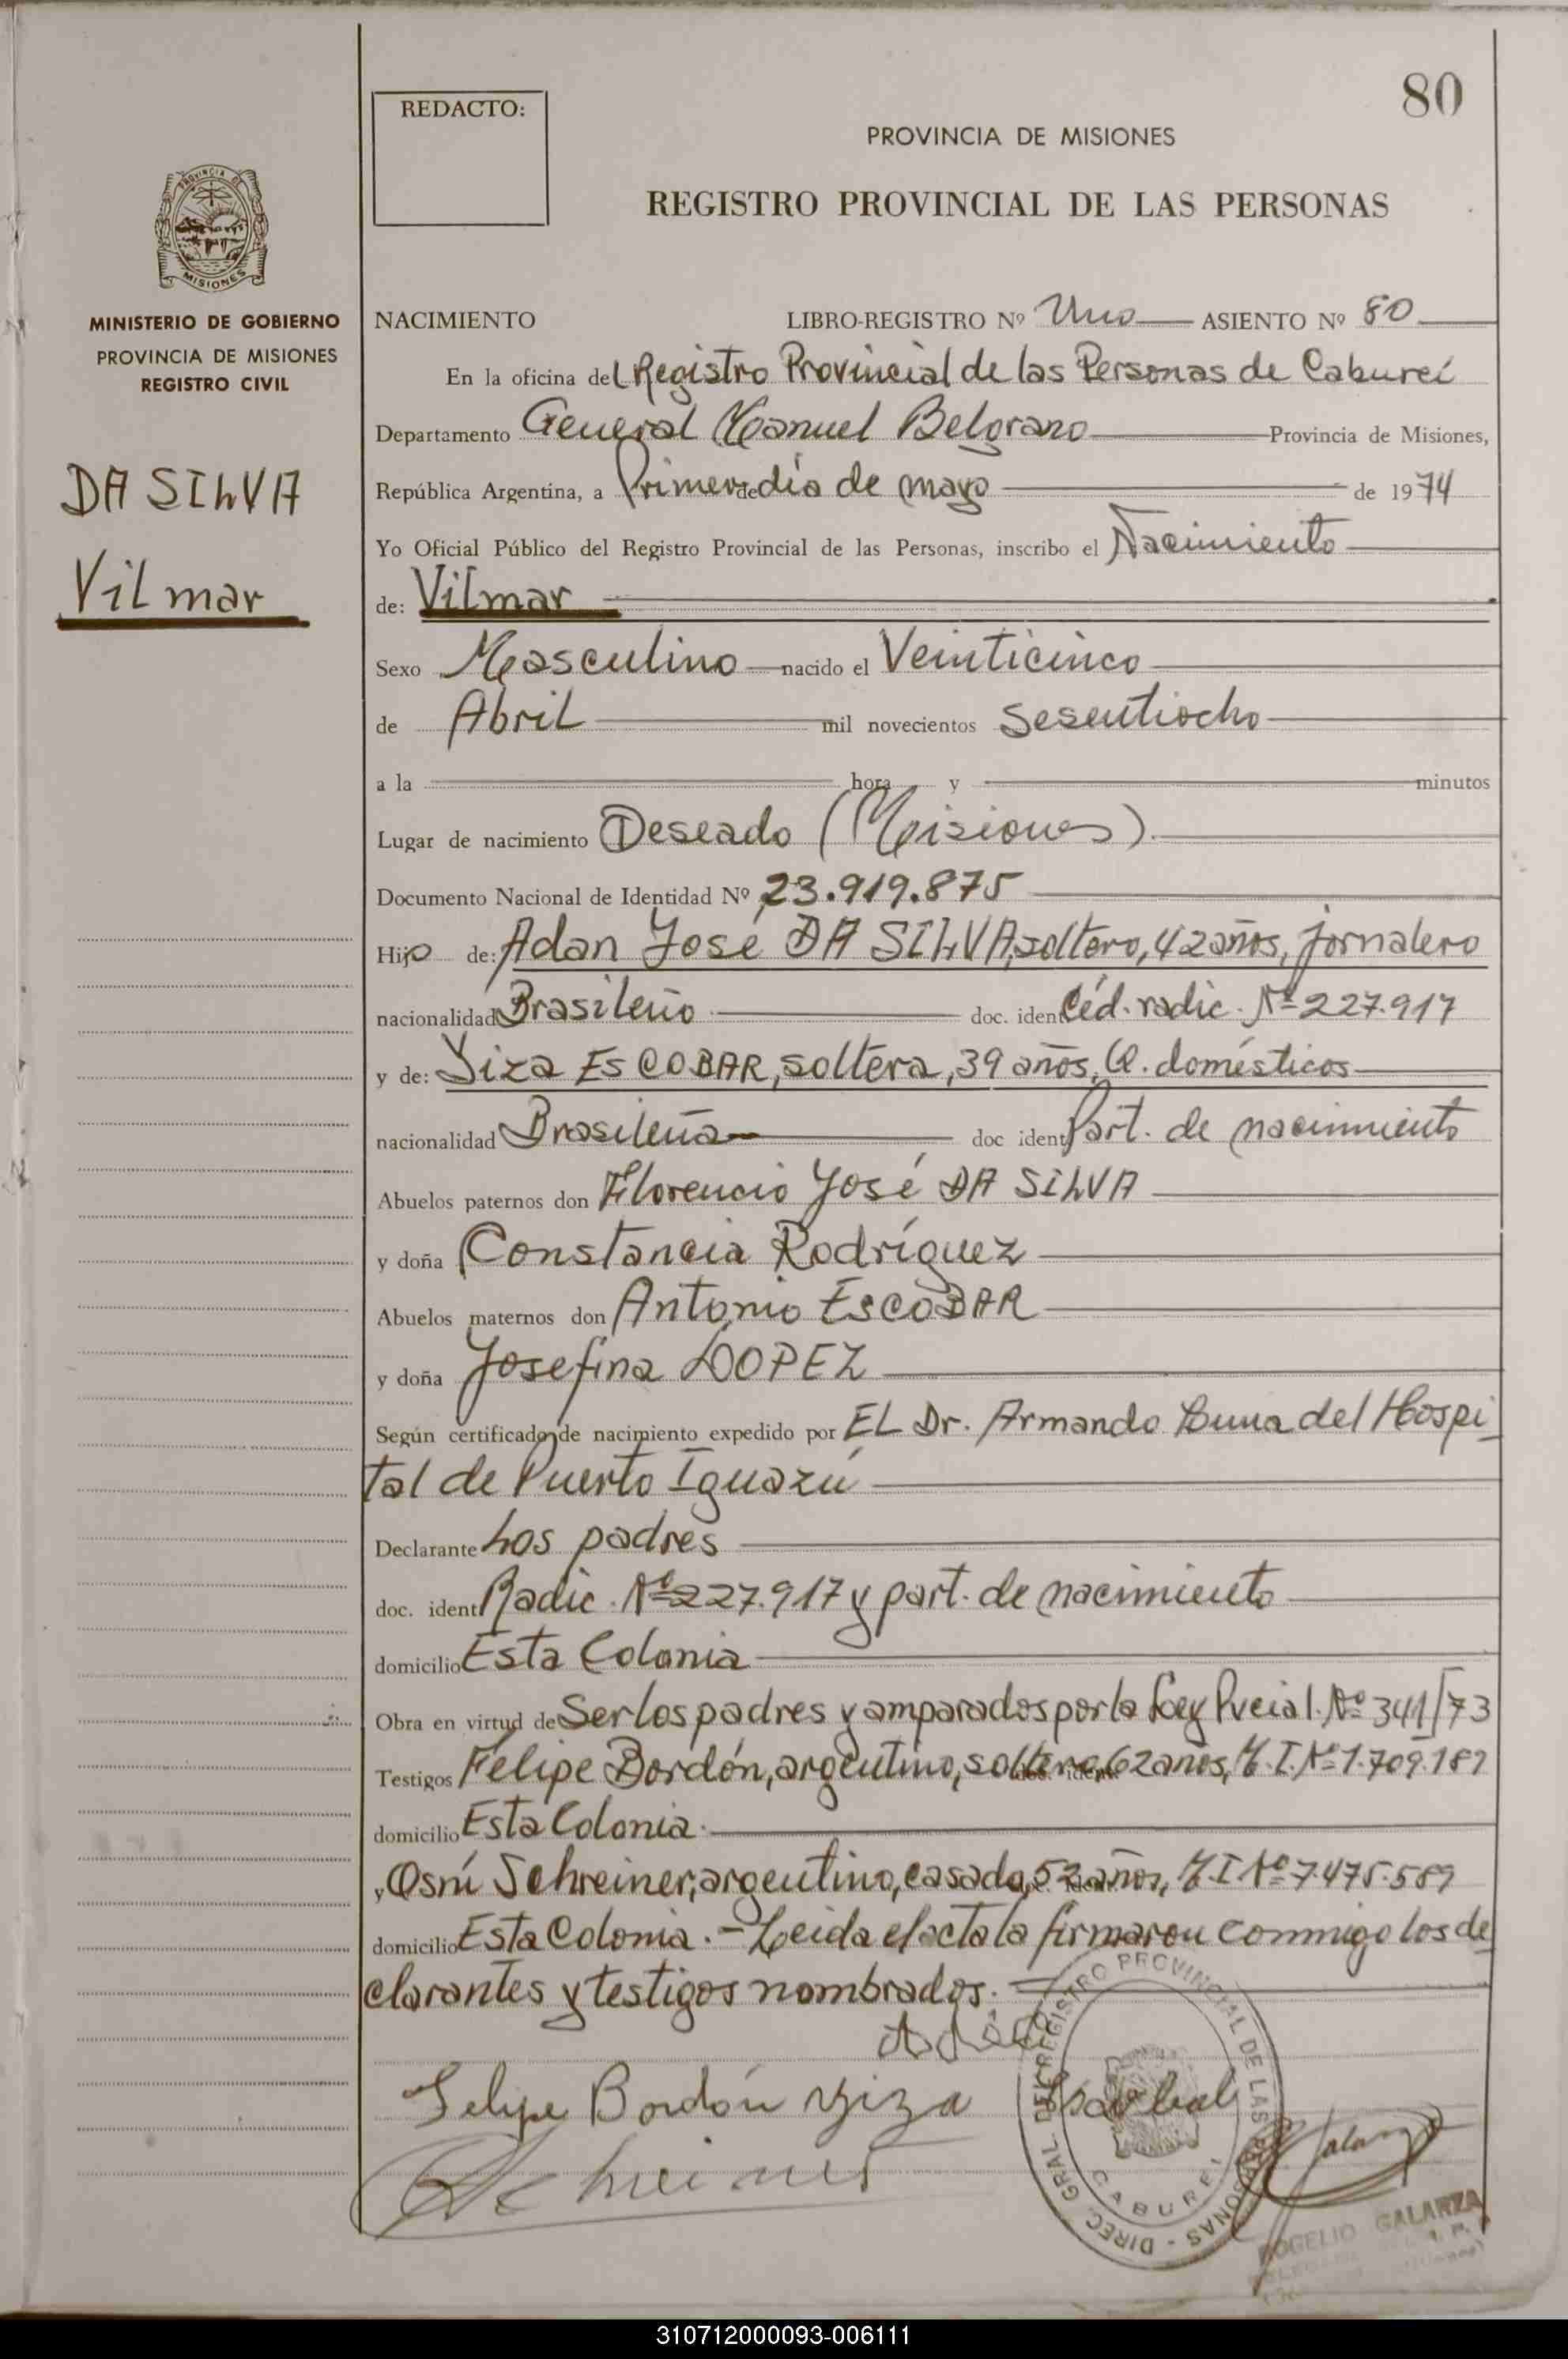 80
REDACTO:
PROVINCIA DE MISIONES
REGISTRO PROVINCIAL DE LAS PERSONAS
PROVINCIA DE
MISIONES
MINISTERIO DE GOBIERNO
PROVINCIA DE MISIONES
REGISTRO CIVIL
DA SILVA
Vilmar
NACIMIENTO LIBRO-REGISTRO Nº Uno ASIENTO Nº 80
En la oficina del Registro Provincial de las Personas de Cabureí
Departamento General Manuel Belgrano Provincia de Misiones,
República Argentina, a Primer de día de mayo de 1974
Yo Oficial Público del Registro Provincial de las Personas, inscribo el Nacimiento
de: Vilmar
Sexo Masculino nacido el Veinticinco
de Abril mil novecientos Sesentiocho
a la hora y minutos
Lugar de nacimiento Deseado (Misiones).
Documento Nacional de Identidad Nº 23.919.875
Hijo de: Adan José DA SILVA, soltero, 42 años, jornalero
nacionalidad Brasileño doc. ident Céd. radic. Nº 227.917
y de: Yiza ESCOBAR, soltera, 39 años, Q. domésticos
nacionalidad Brasileña doc ident Part. de nacimiento
Abuelos paternos don Florencio José DA SILVA
y doña Constancia Rodríguez
Abuelos maternos don Antonio ESCOBAR
y doña Josefina LOPEZ
Según certificado de nacimiento expedido por EL Dr. Armando Luna del Hospi_
tal de Puerto Iguazú
Declarante Los padres
doc. ident Radic. Nº 227.917 y part. de nacimiento
domicilio Esta Colonia
Obra en virtud de Ser los padres y amparados por la Ley Pvcial. Nº 341/73
Testigos Felipe Bordón, argentino, soltero, 62 años, M.I. Nº 1.709.189
domicilio Esta Colonia.
y Osni Schreiner, argentino, casado, 52 años, M.I Nº 7.475.589
domicilio Esta Colonia. - Leida el acta la firmaron conmigo los de
clarantes y testigos nombrados.
Felipe Bordón Yiza
Schreiner
DIREC. GRAL. DEL REGISTRO PROVINCIAL DE LAS PERSONAS - CABUREI
Galarza
ROGELIO GALARZA
310712000093-006111